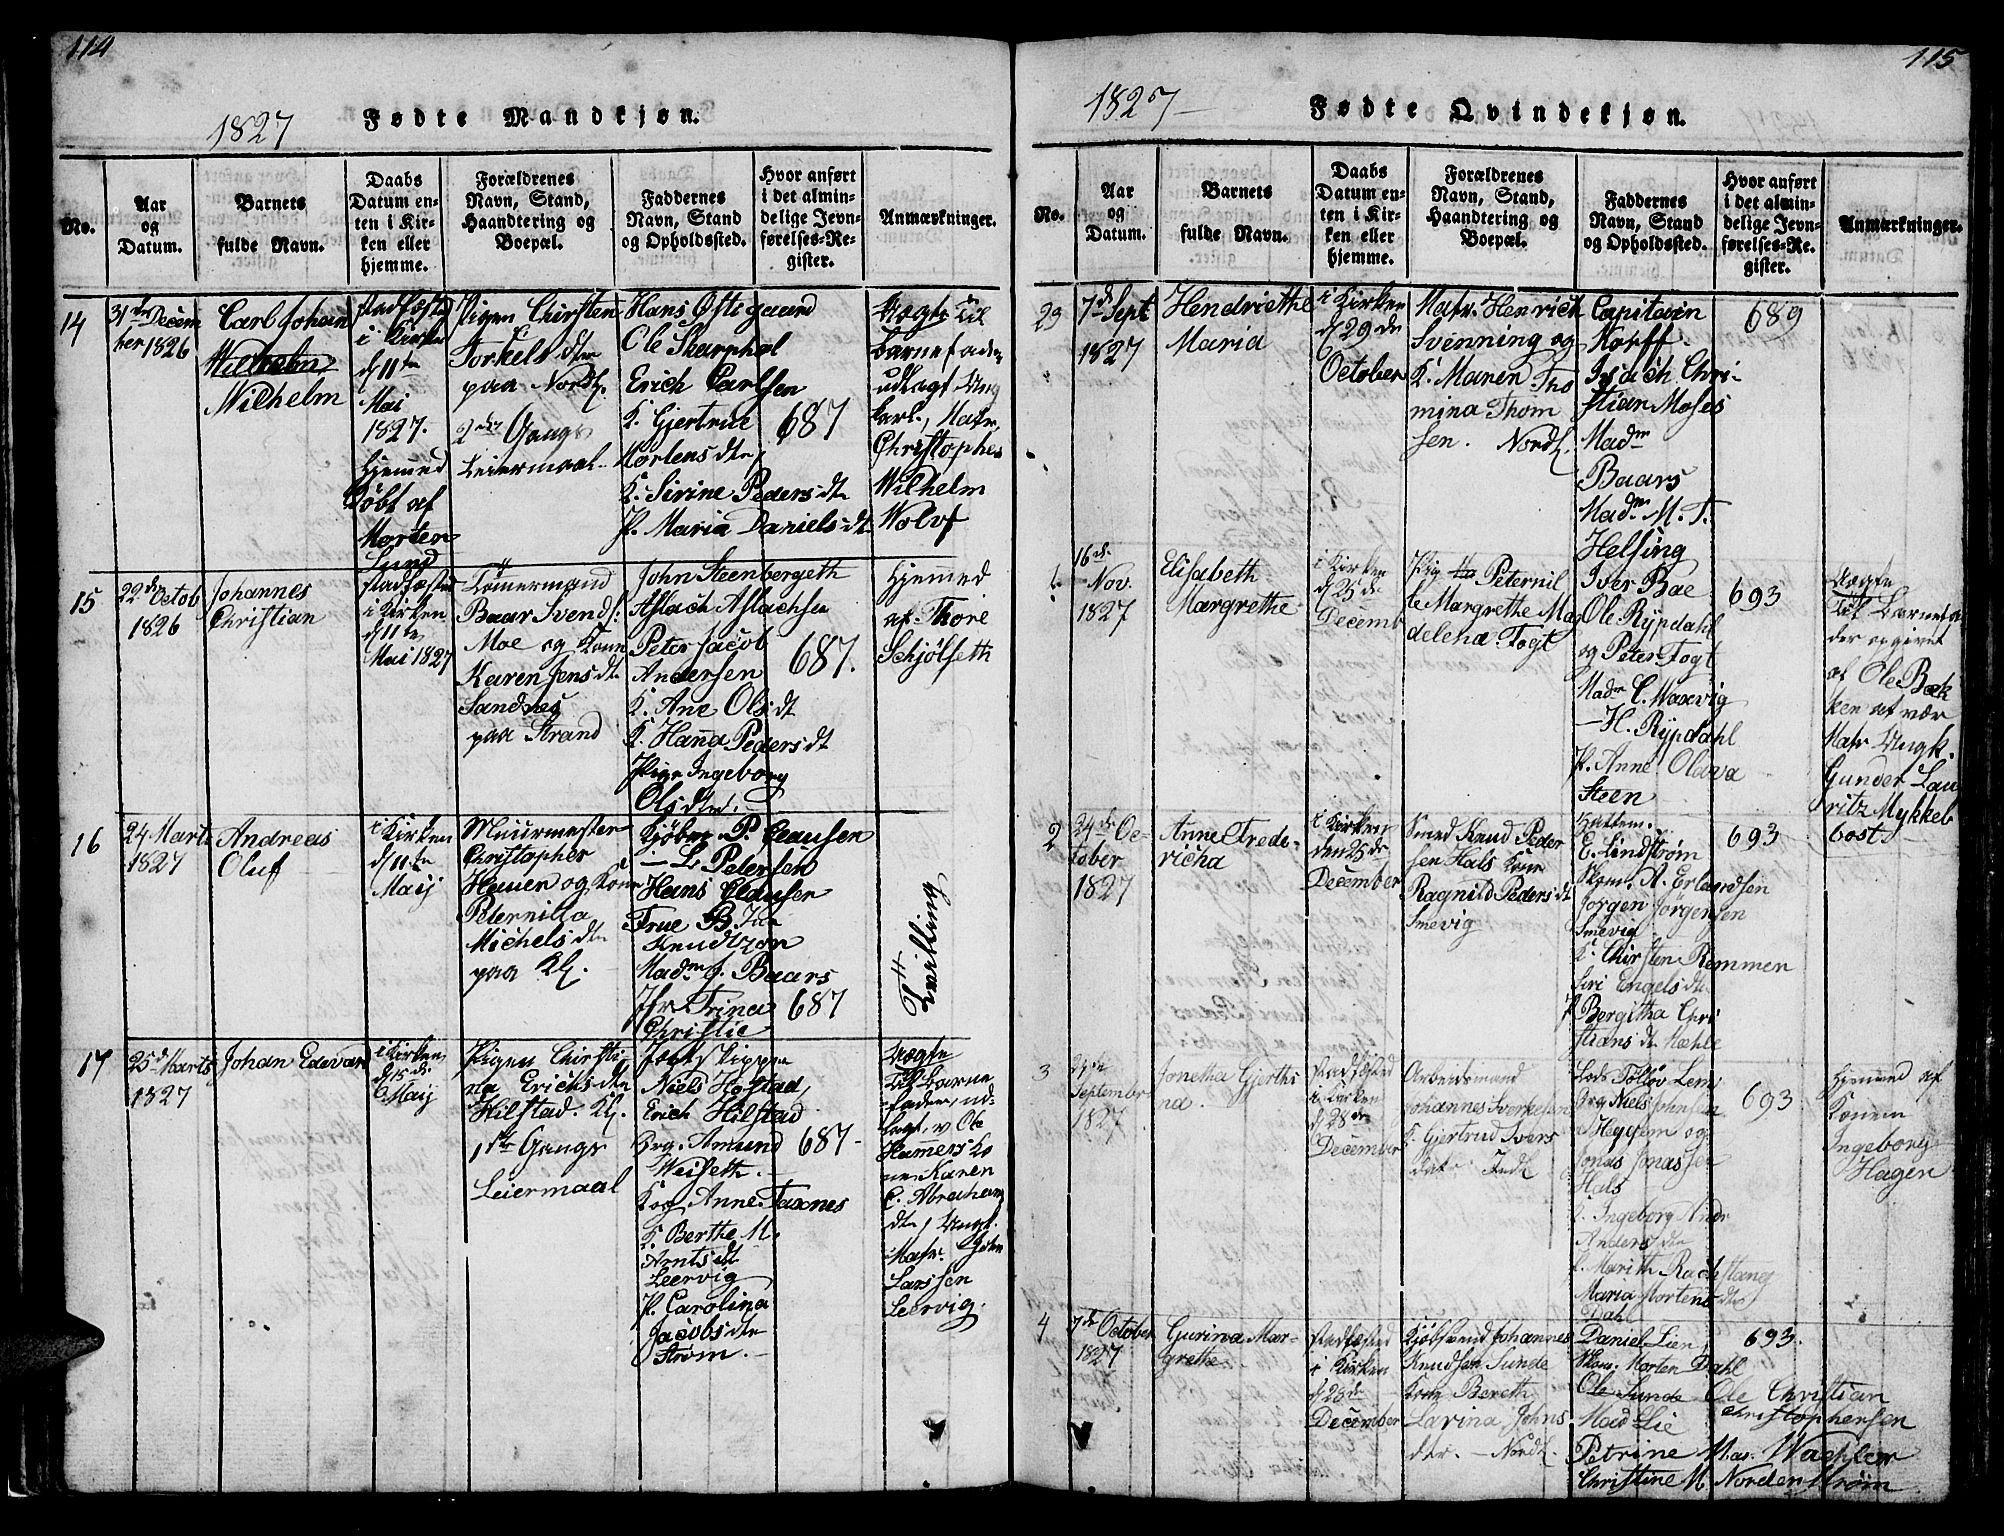 114
1827 Fødte Mandkjøn.
No.
Aar
og
Datum.
Barnets
fulde Navn.
Daabs
Datum en-
ten i Kir-
ken eller
hjemme.
Forældrenes
Navn, Stand,
Haandtering og
Boepæl.
Faddernes
Navn, Stand
og Opholdssted.
Hvor anført
i det almin-
delige Jevn-
førelses-Re-
gister.
Anmærkninger.
14
31te Decem
ber 1826
Carl Johan
Wilhelm
Wilhelm
stadfæstet
i Kirken
d 11te
Mai
1827.
Hjemed
døbt af
Morten
Lund
Pigen Chirsten
Torkelsdtr
paa Nordl.
2den Gangs
Leiermaal
Hans Østigaard
Ole Skarphol
Erich Carlsen
K. Gjertrue
Mortensdtr
K. Sirine Pedersdtr
P. Maria Danielsdt
687
Uægte Til
Barnefader
udlagt Ung
karl, Matr.
Christopher
Wilhelm
Wolff
15
22de Octob
1826
Johannes
Christian
stadfæstet
i Kirken
d 11te
Mai 1827
Tømermand
Baar Svends.
Moe og Kone
Karen Jensdtr
Sandnes
paa Strand
John Steenbergeth
Aslach Aslachsen
Peter Jacob
Andersen
K. Ane Olsdt
K. Hanna Pedersdt
Pige Ingeborg
Olsdtr.
687.
Hjemed
af Thore
Schjølseth
16
24 Marti
1827
Andreas
Oluf
i Kirken
d 11te
Maij
Muurmester
Christopher
Heuer og Kone
Peternilla
Michelsdtr
paa Kl.
Kjøbm. P. Clausen
— L. Petersen
Hans Clausen
Frue B.
Knudtzon
Madm J. Baars
Jfr Trina
Christie
687
Tvilling
17
25d Marts
1827
Johan Edevart
i Kirken
d 15de
Maij
Pigen Chirsti
na Erichsdtr
Hilstad. Kl.
1ste Gangs
Leiermaal
Jægtskipper
Niels Hostad,
Erich Hilstad
Brg. Amund
Weiseth.
K og Anne Taxnes
K. Berthe M.
Arntsdt
Leervig
P. Carolina
Jacobsdtr
Strøm.
687
Uægte
Til Barne
fader, ud
lagt, v Ole
Hammers Ko
ne Karen
C. Abraham
dtr, Ungk.
Matr. John
Larssen
Leervig.
115
1827 Fødte Qvindekjøn.
No.
Aar
og
Datum.
Barnets
fulde Navn.
Daabs
Datum en-
ten i Kir-
ken eller
hjemme.
Forældrenes
Navn, Stand,
Haandtering og
Boepæl.
Faddernes
Navn, Stand
og Opholdssted.
Hvor anført
i det almin-
delige Jevn-
førelses-Re-
gister.
Anmærkninger.
29
7de Sept
1827
Hendriethe
Maria
i Kirken
d 29de
October
Matr. Henrich
Svenning og
K. Maren Tho
mina Thom
sen. Nordl.
Capitain
Korff
Isach Chri-
stian Moses
Madm
Baars
Madm M. T.
Helsing
689
1.
16de
Nov.
1827
Elisabeth
Margrethe
i Kirken
d 25de
Decemb
Pig Peternil
le Margrethe Mag
delena Fogt
Iver Bae
Ole Rypdahl
og Peter Fogt
Madm C. Maxvig
— H. Rypdahl
P. Anne Olava
Steen
693
Uægte
Til Barnefa
der opgivet
af Ole Bæk
ken at vær
Matr Ungk.
Gunder Lau
ritz Mykkel
bost
2
24de Oc-
tober
1827
Anne Frede-
richa
i Kirken
den 25de
December
Smed Knud Peder
sen Hals Kone
Ragnild Pedersdt
Smevig
Hattem.
E. Lindstrøm
Skom. A. Erlandsen
Jørgen Jørgensen
Smevig
K. Chirsten Remmen
Siri Engelsdtr
P. Bergitha Chri
stiansdt Mæhle
693
3
Septembr
1827
Jonetha Gjerths
na.
stadfæsted
i Kirken
d 28de
December
Arbeidsmand
Johannes Sverkesen
K. Gjertrud Svers
datr Indl
Lods Tølløv Lem
Brg Niels Johnsen
Heggem og
Jonas Jonassen
Hals
K. Ingeborg Andr
Andersdtr
P. Marith Rachstang
Maria Mortensdtr
Dahl
693
Hjemed af
Konen
Ingeborg
Hagen
4
7de October
1827
Gurina Mar-
grethe
stadfæsted
i Kirken
d 28de
December
Kjølsvend Johannes
Knudsen Sunde
Kone Bereth
Larina Johns
dtr. — Nordl.
Daniel Lien
Skom. Morten Dahl
Ole Sunde Ole Christian
Christophersen
Mad Lie
Petrine Mar. Wæhler
Christine M Nordenstrøm
693.